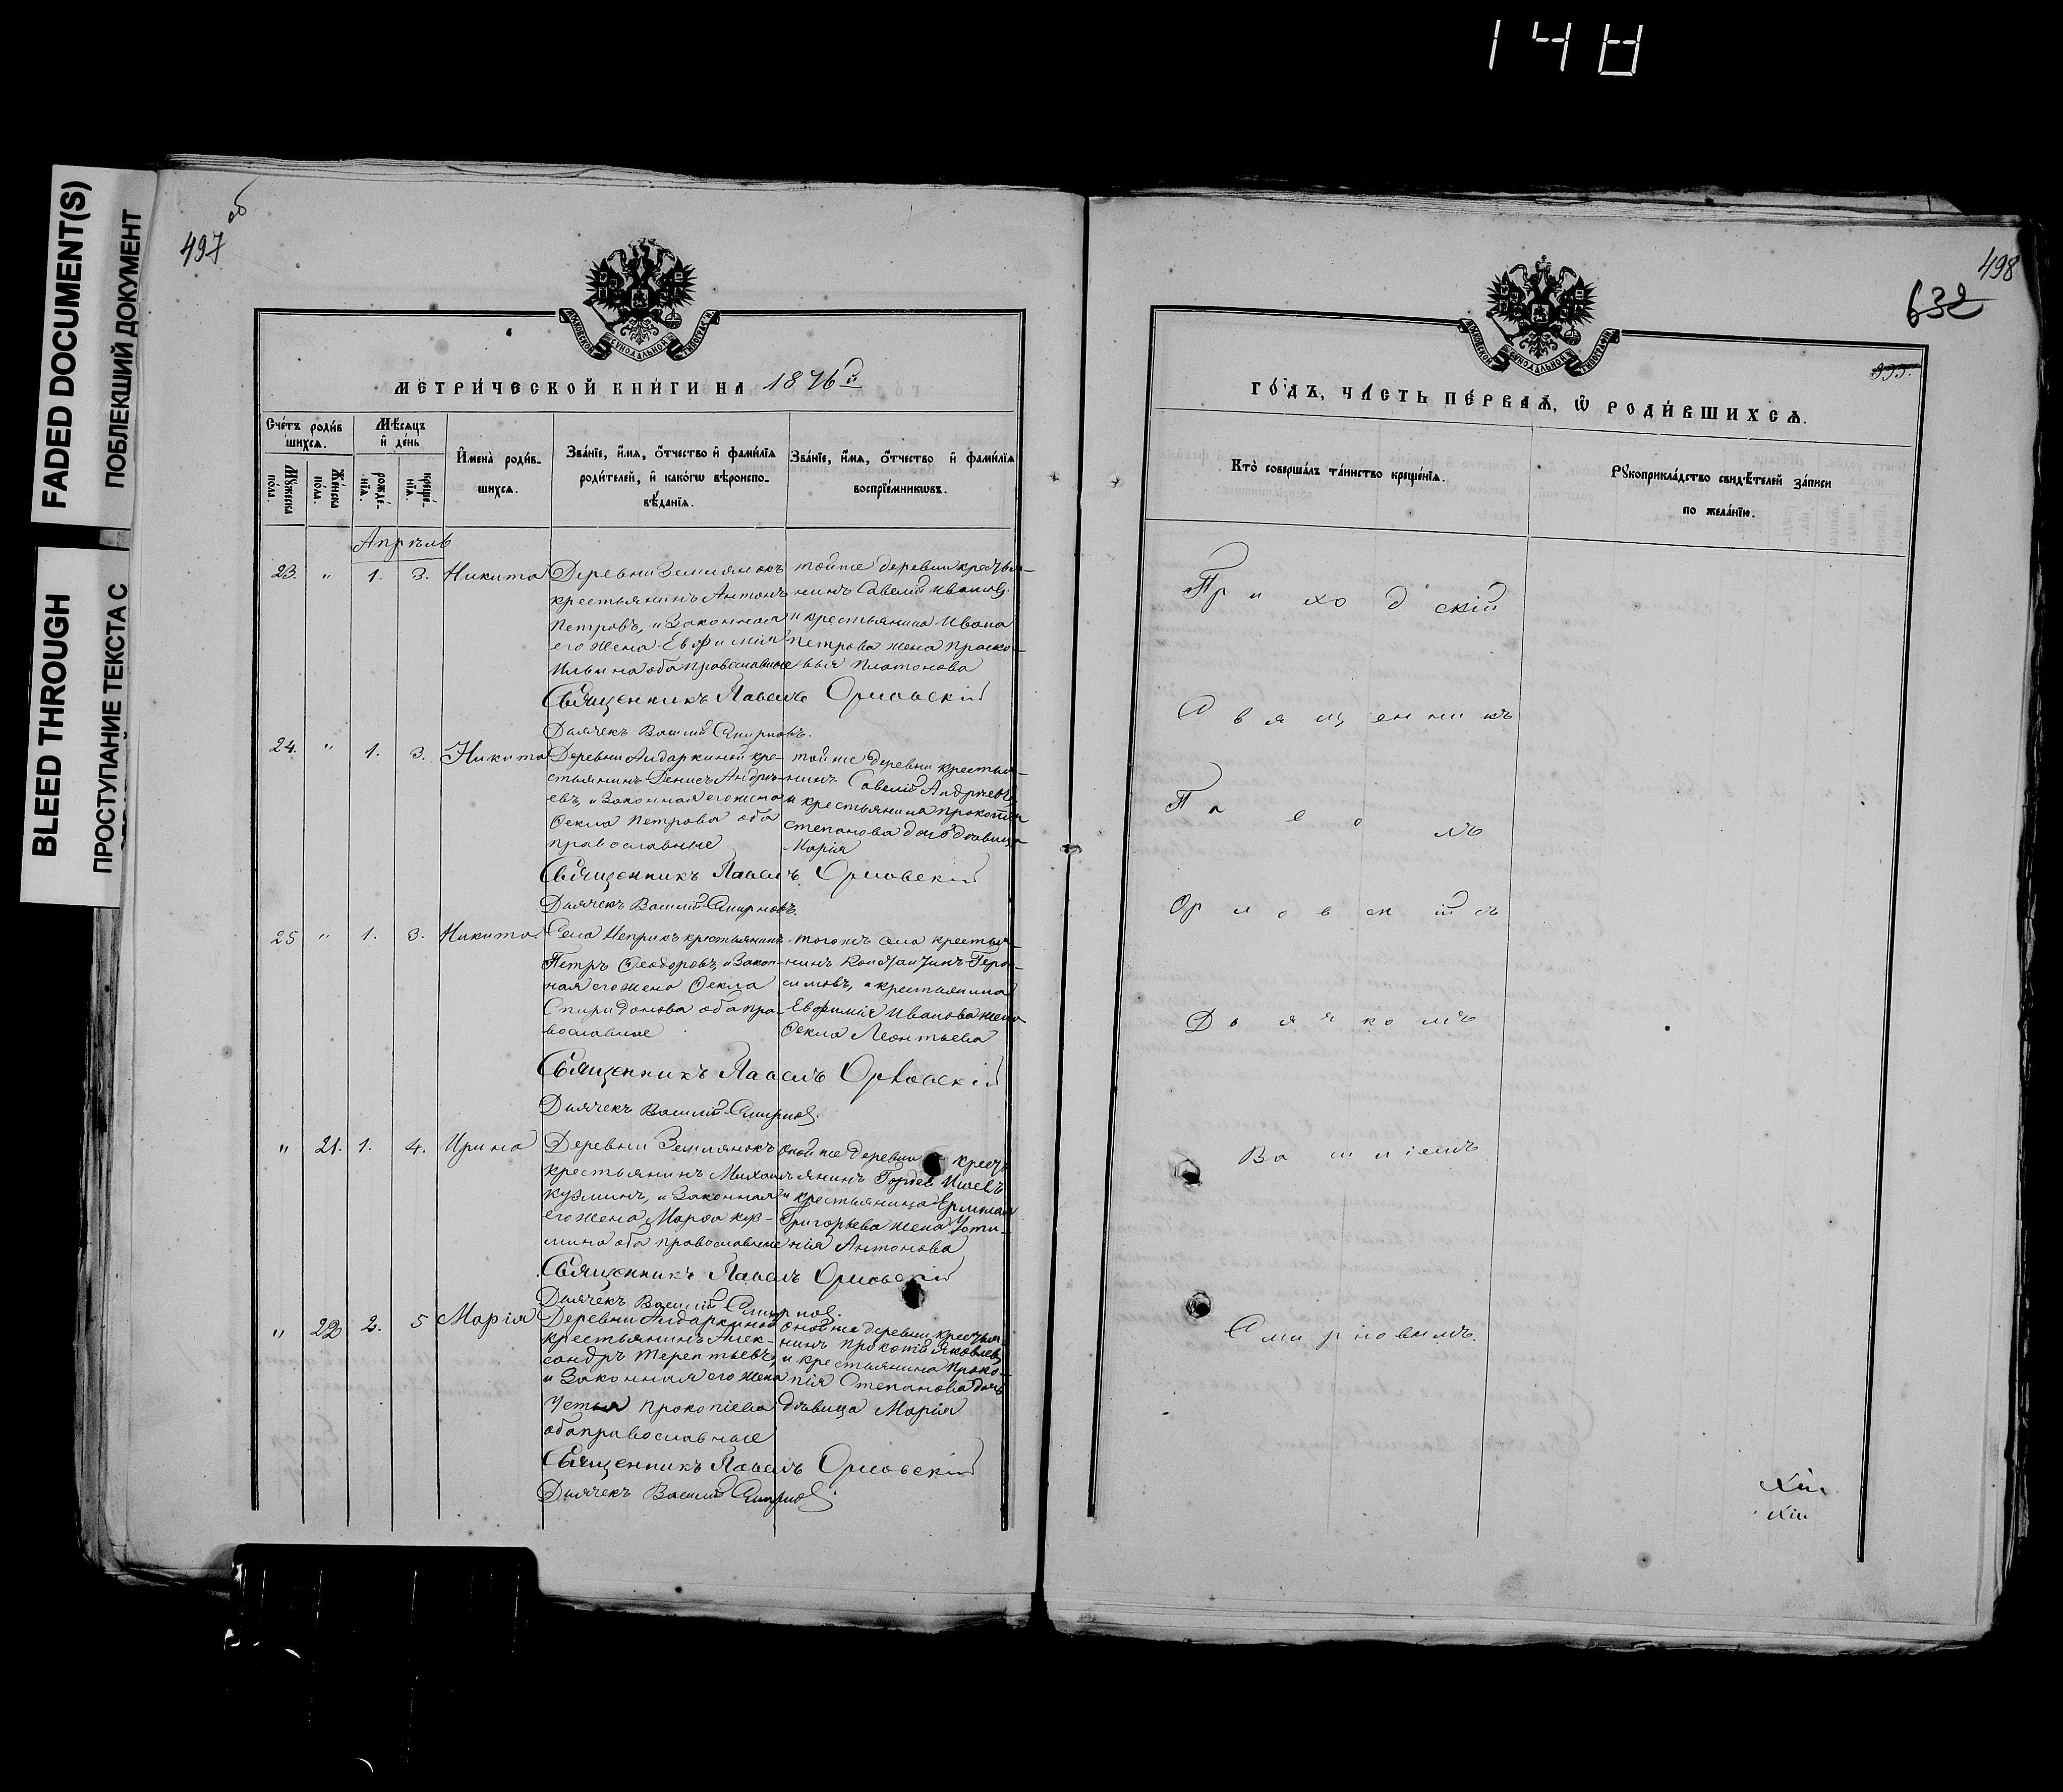 148
FADED DOCUMENT(S)
ПОБЛЕКШИЙ ДОКУМЕНТ
BLEED THROUGH
ПРОСТУПАНИЕ ТЕКСТА С
497 об
МОСКОВСКОЙ СУНОДАЛЬНОЙ ТИПОГРАФІИ
МЕТРИ́ЧЕСКОЙ КНИ́ГИ НА 1876й
Сче́тъ роди́вшихсѧ.
Мꙋ́жеска пола.
Же́нска по́ла.
Мѣ́сѧцъ и҆ де́нь
рожде́нїѧ.
креще́нїѧ.
И҆мена̀ роди́вшихсѧ.
Зва́нїе, и҆́мѧ, ѻ҆́тчество и҆ фами́лїѧ родителей, и҆ како́гѡ вѣроисповѣ́данїѧ.
Зва́нїе, и҆́мѧ, ѻ҆́тчество и҆ фами́лїѧ воспрїе́мникѡвъ.
Апрѣль
23. " 1. 3. Никита
Деревни Землянокъ
крестьянинъ Антонъ
Петровъ, и законная
его жена Евфимія
Ильина оба православные
тойже деревни крестья-
нинъ Савелій Ивановъ.
и крестьянина Ивана
Петрова жена Праско-
вья Платонова
Священникъ Павелъ Орловскій
Дьячекъ Василій Смирновъ.
24. " 1. 3. Никита
Деревни Андаркиной кре-
стьянинъ Денисъ Андре-
евъ, и законная его жена
Ѳекла Петрова оба
православные
той же деревни крестья-
нинъ Савелій Андреевъ
и крестьянина Прокопія
Степанова дочь девица
Марія
Священникъ Павелъ Орловскій
Дьячекъ Василій Смирновъ.
25 " 1. 3. Никита.
Села Неприкъ крестьянинъ
Петръ Ѳеодоровъ, и закон-
ная его жена Ѳекла
Спиридонова оба пра-
вославные
тогожъ села крестья-
нинъ Константинъ Гера-
симовъ, и крестьянина
Евфимія Иванова жена
Ѳекла Леонтьева
Священникъ Павелъ Орловскій
Дьячекъ Василій Смирновъ.
" 21. 1. 4. Ирина
Деревни Землянокъ
крестьянинъ Михаилъ
Кузминъ, и законная
его жена Марѳа Куз-
мина оба православные
оной же деревни крест
янинъ Гордей
и крестьянина
Григорьева жена Усти-
нія Антонова
Священникъ Павелъ Орловскій
Дьячекъ Василій Смирновъ.
" 22 2. 5 Марія
Деревни Андаркиной
крестьянинъ Алек-
сандръ Терентьевъ,
и законная его жена
Устья Прокопіева
оба православные
оной же деревни крестья-
нинъ Прокопій Яковлевъ
и крестьянина Проко-
пія Степанова дочь
дѣвица Марія
Священникъ Павелъ Орловскій
Дьячекъ Василій Смирновъ.
498
632
МОСКОВСКОЙ СУНОДАЛЬНОЙ ТИПОГРАФІИ
ГО́ДЪ, ЧА́СТЬ ПЕ́РВАѦ, Ѽ РОДИ́ВШИХСѦ.
Кто̀ соверша́лъ та́инство креще́нїѧ.
Рꙋкоприкла́дство свидѣ́телей за́писи по жела́нїю.
Приходскій
Священникъ
Павелъ
Орловскій съ
Дьячкомъ
Василіемъ
Смирновымъ.